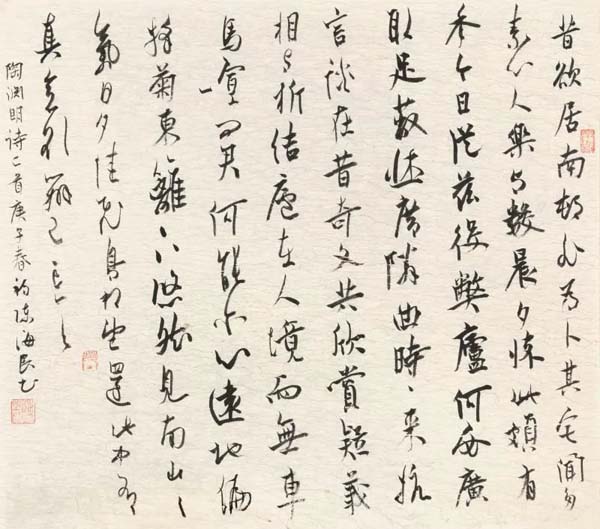 昔欲居南邨非为卜其宅闻多
素心人樂与數晨夕懷此頗有
年今日從兹役弊廬何必廣
取足蔽牀席隣曲時〻来抗
言談在昔奇文共欣賞疑義
相与析结廬在人境而無車
馬喧问君何能尔心遠地偏
採菊東籬下悠然見南山〻
氣日夕佳飛鳥相与還此中有
真意欲辨已忘言
陶渊明诗二首庚子春韵陈海良书